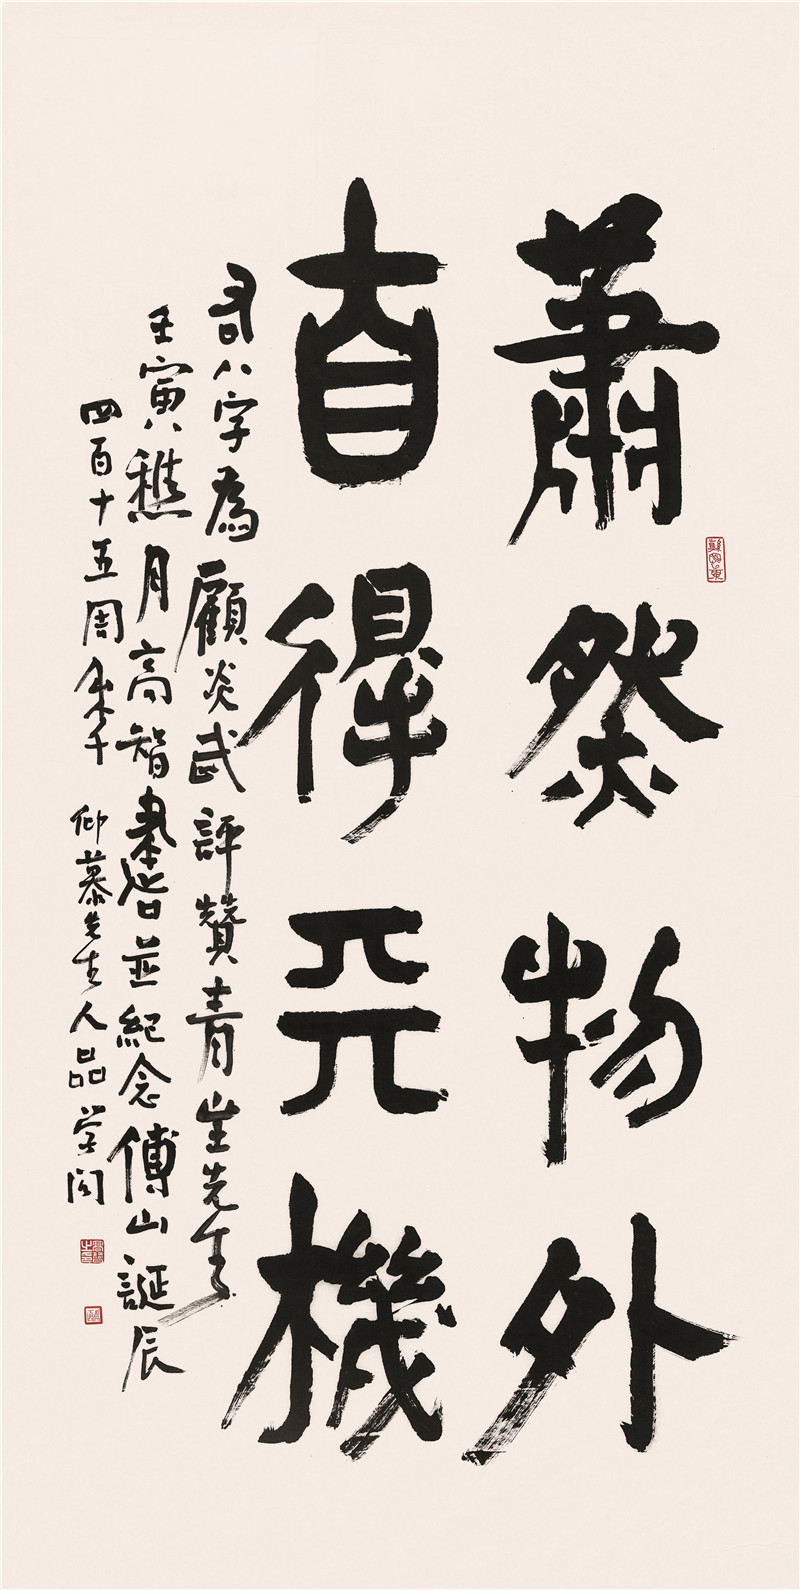 蕭然物外
自得天機
右八字為顧炎武評贊青主先生
壬寅穛月高智書旹並紀念傅山誕辰
四百十五周秊 仰慕先生人品学问